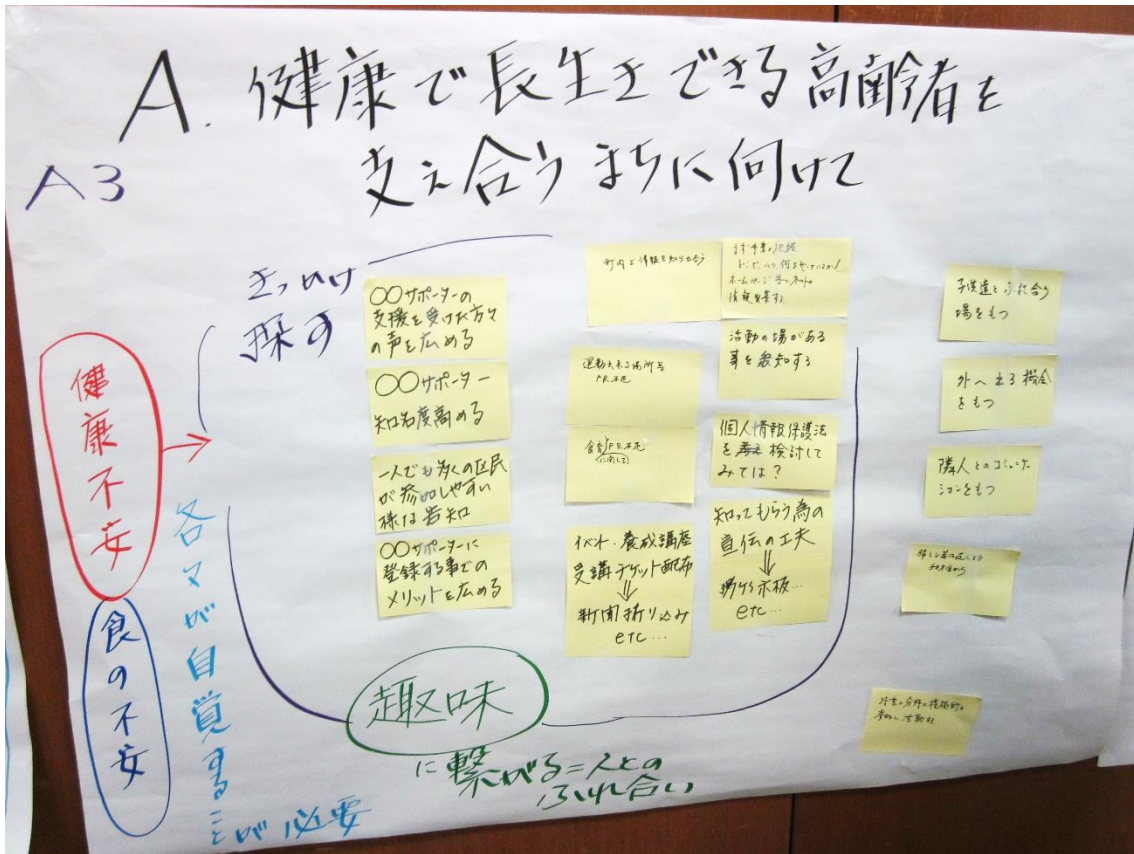 A. 健康で長生きできる高齢者を
支え合うまちに向けて
A3
きっかけ
探す
健康不安
食の不安
各々が自覚すること
が必要
〇〇サポーターの
支援を受けた方々
の声を広める
〇〇サポーター
知名度高める
一人でも多くの区民
が参加しやすい
様に告知
〇〇サポーターに
登録する事での
メリットを広める
町内で情報を知らせ合う
運動出来る場所等
PR不足
食育PR不足
に関して
イベント・養成講座
受講チケット配布
⇓
新聞折り込み
etc…
情報発信する
活動の場がある
事を告知する
個人情報保護法
を検討して
みては?
知ってもらう為の
宣伝の工夫
⇓
etc…
子供達とふれ合う
場をもつ
外へ出る機会
をもつ
隣人とのコミュニケー
ションをもつ
趣味
に繋がる=人との
ふれ合い